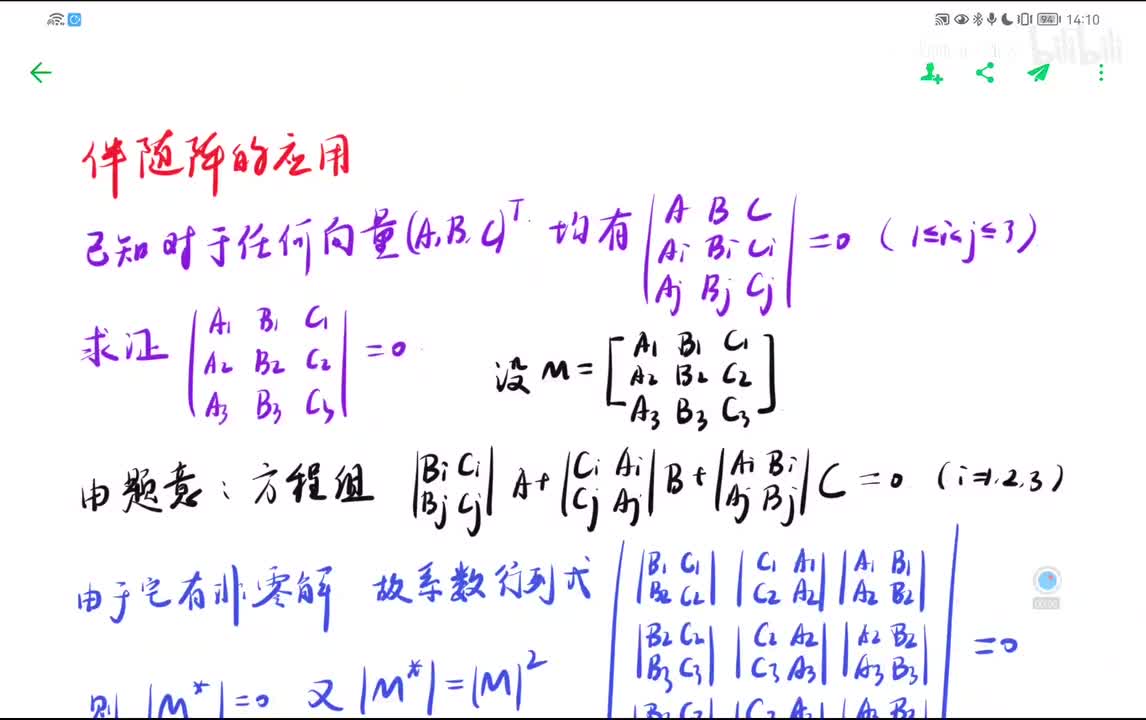 94 14:10
bilibili
伴随阵的应用
已知对于任何向量(A,B,C)^T 均有 |A B C; Ai Bi Ci; Aj Bj Cj| =0 (1≤i<j≤3)
求证 |A1 B1 C1; A2 B2 C2; A3 B3 C3| =0
设 M= [A1 B1 C1; A2 B2 C2; A3 B3 C3]
由题意: 方程组 |Bi Ci; Bj Cj| A+ |Ci Ai; Cj Aj| B+ |Ai Bi; Aj Bj| C =0 (i=1,2,3)
由于它有非零解 故系数行列式 | |B1 C1; B2 C2| |C1 A1; C2 A2| |A1 B1; A2 B2|; |B2 C2; B3 C3| |C2 A2; C3 A3| |A2 B2; A3 B3|; =0
则 |M*|=0 又 |M*|=|M|^2
00:00